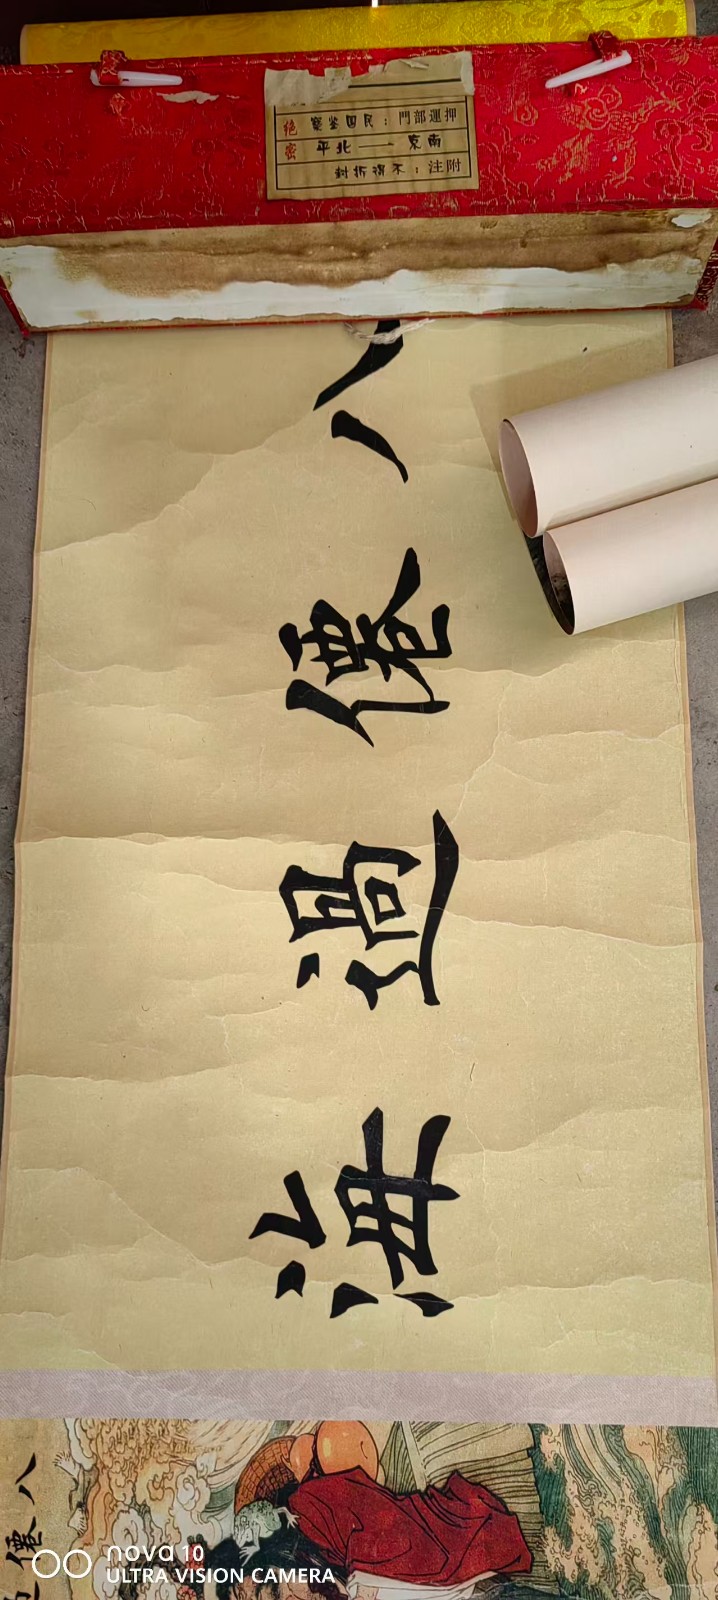 絶密
押運部門：民国鉴寳
南京——北平
附注：不得拆封
八僊過海
八僊
nova 10
ULTRA VISION CAMERA